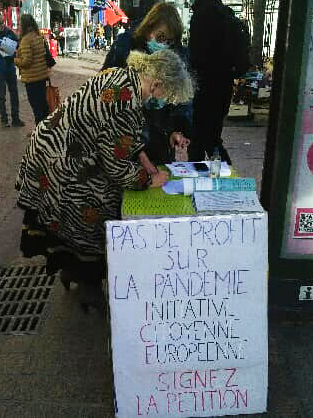 PAS DE PROFIT
SUR
LA PANDEMIE
INITIATIVE
CITOYENNE
EUROPEENNE
SIGNEZ
LA PETITION